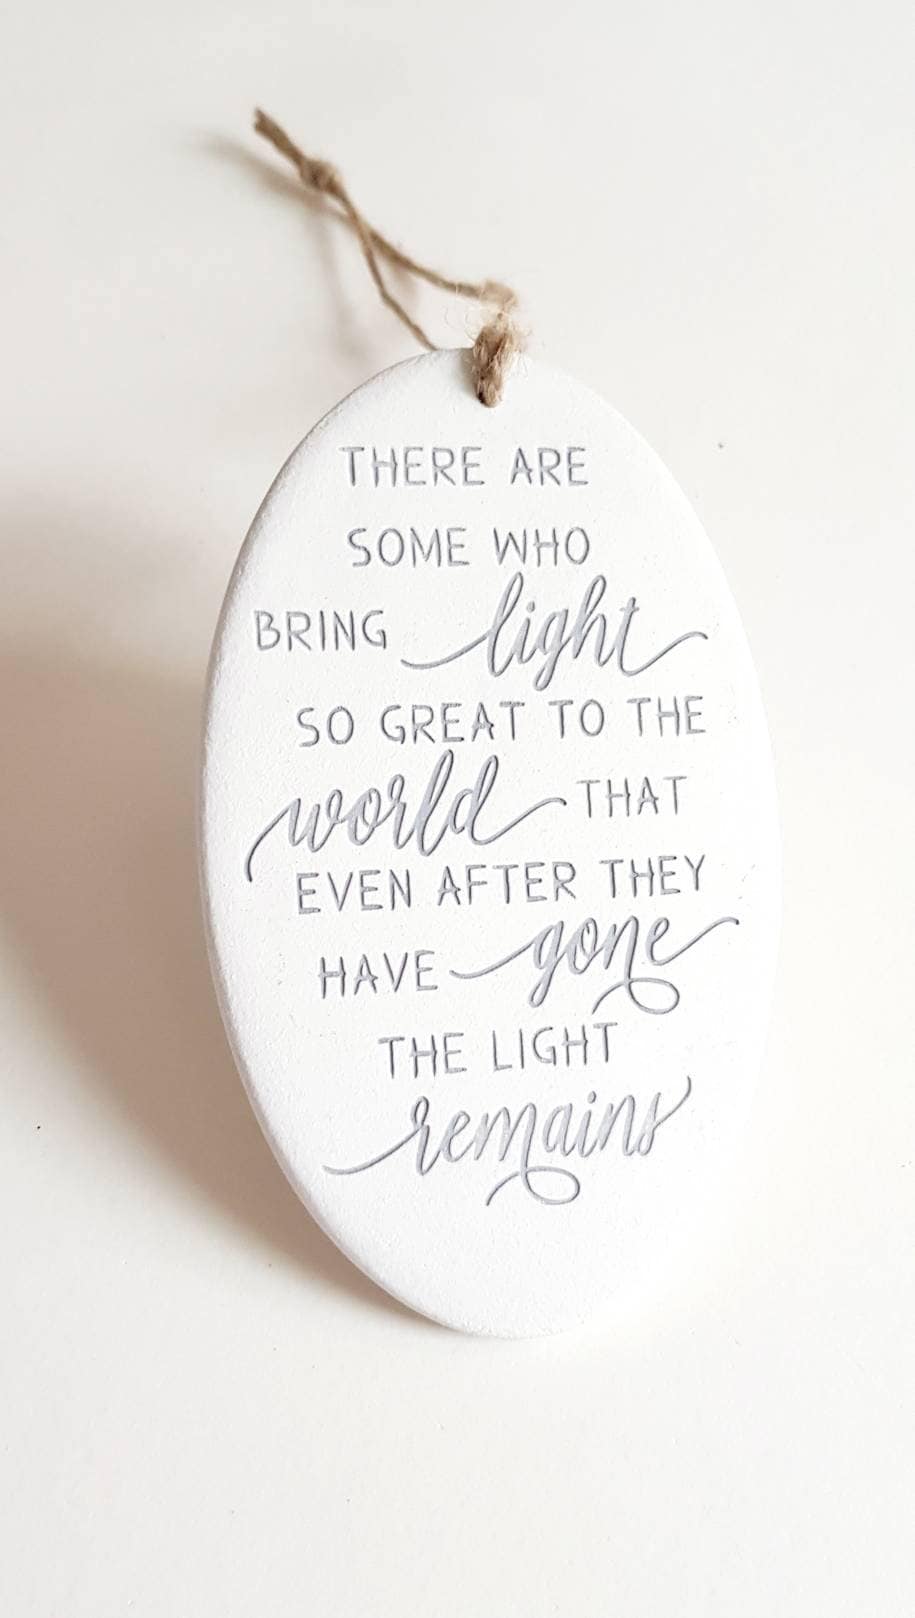 THERE ARE
SOME WHO
BRING light
SO GREAT TO THE
world THAT
EVEN AFTER THEY
HAVE gone
THE LIGHT
remains